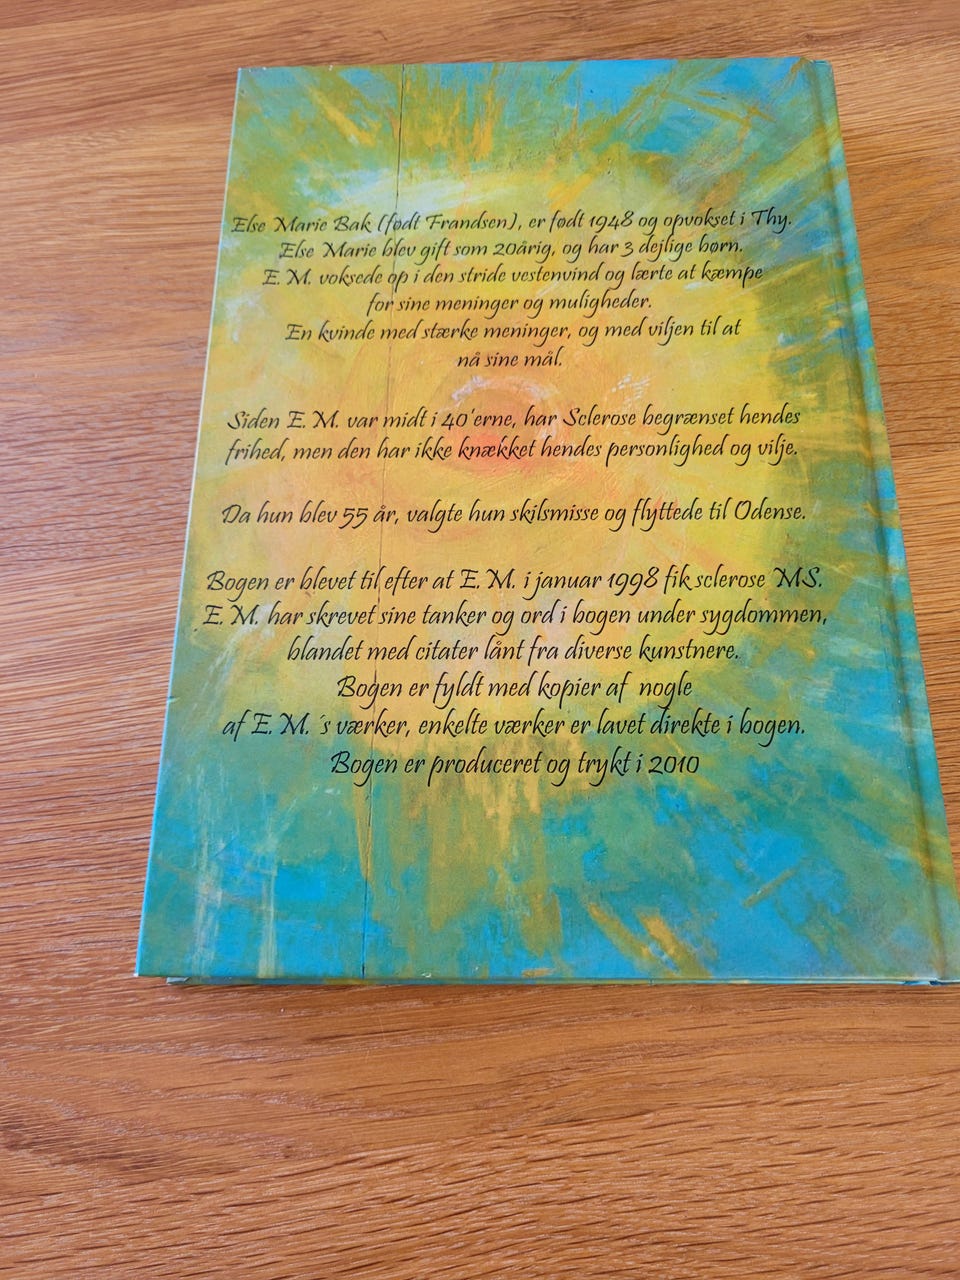 Else Marie Bak (født Frandsen), er født 1948 og opvokset i Thy.
Else Marie blev gift som 20årig, og har 3 dejlige børn.
E. M. voksede op i den stride vestenvind og lærte at kæmpe
for sine meninger og muligheder.
En kvinde med stærke meninger, og med viljen til at
nå sine mål.
Siden E. M. var midt i 40'erne, har Sclerose begrænset hendes
frihed, men den har ikke knækket hendes personlighed og vilje.
Da hun blev 55 år, valgte hun skilsmisse og flyttede til Odense.
Bogen er blevet til efter at E. M. i januar 1998 fik sclerose MS.
E. M. har skrevet sine tanker og ord i bogen under sygdommen,
blandet med citater lånt fra diverse kunstnere.
Bogen er fyldt med kopier af nogle
af E. M. ´s værker, enkelte værker er lavet direkte i bogen.
Bogen er produceret og trykt i 2010